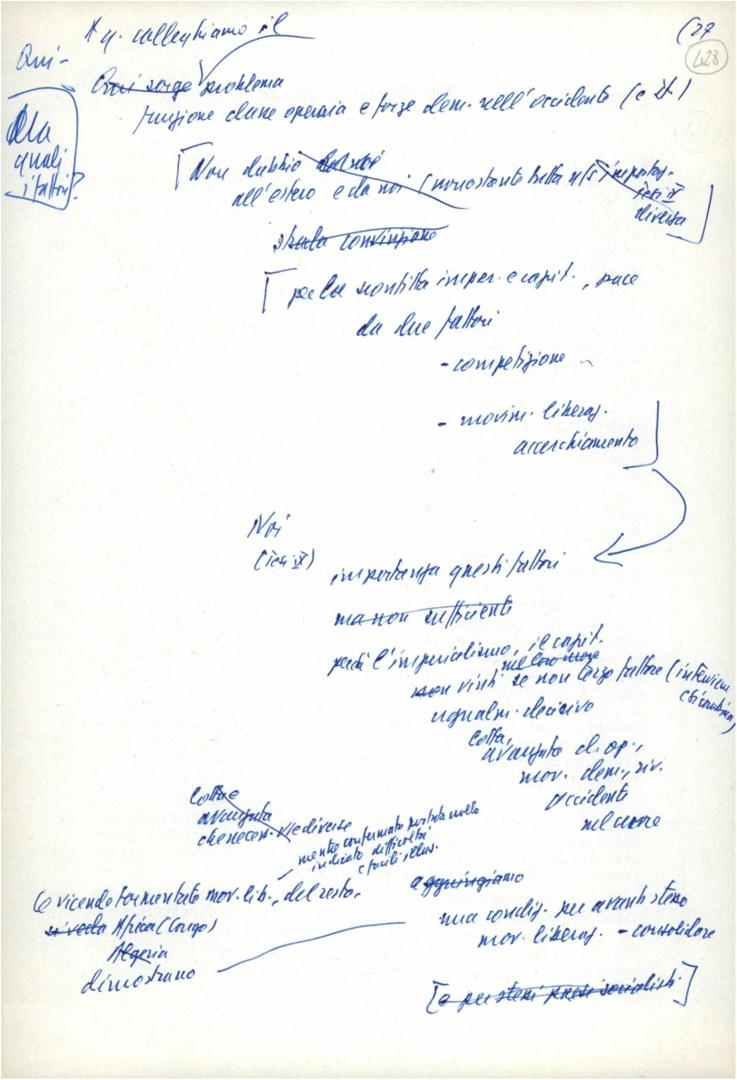 (27
428
A q. colleghiamo il
Qui -
Qui sorge problema
funzione classe operaia e forze dem. nell'occidente (e it.)
Ma
quali
i fattori?
[Non dubbio
all'estero e da noi (nonostante tutta
importaz.
tesi IX
diversa]
sulla convinzione
[perché sconfitta imper. e capit., pace
da due fattori
- competizione
- movim. liberaz.
accerchiamento]
Noi
(Tesi IX)
importanza questi fattori
ma non sufficienti
perché l'imperialismo, il capit.
nel loro cuore
non vinti se non terzo fattore (
ugualm. decisivo
lotta,
avanzata cl. op.,
mov. dem., riv.
occidente
nel cuore
lotta e
avanzata
che necess. vie diverse
mentre confermato portata molto
indicato difficoltà
(facili illus.
Le vicende tormentate mov. lib., del resto,
si veda Africa (Congo)
Algeria
dimostrano
aggiungiamo
una condiz. per avanti stesso
mov. liberaz. - consolidare
[e per stessi paesi socialisti]